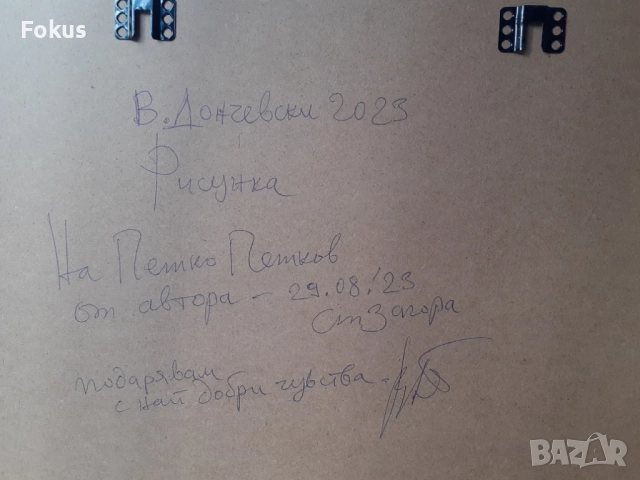 Fokus
В. Дончевски 2023
Рисунка
На Петко Петков
от автора - 29.08.'23
Ст Загора
подарявам
с най добри чувства -
BAZAR